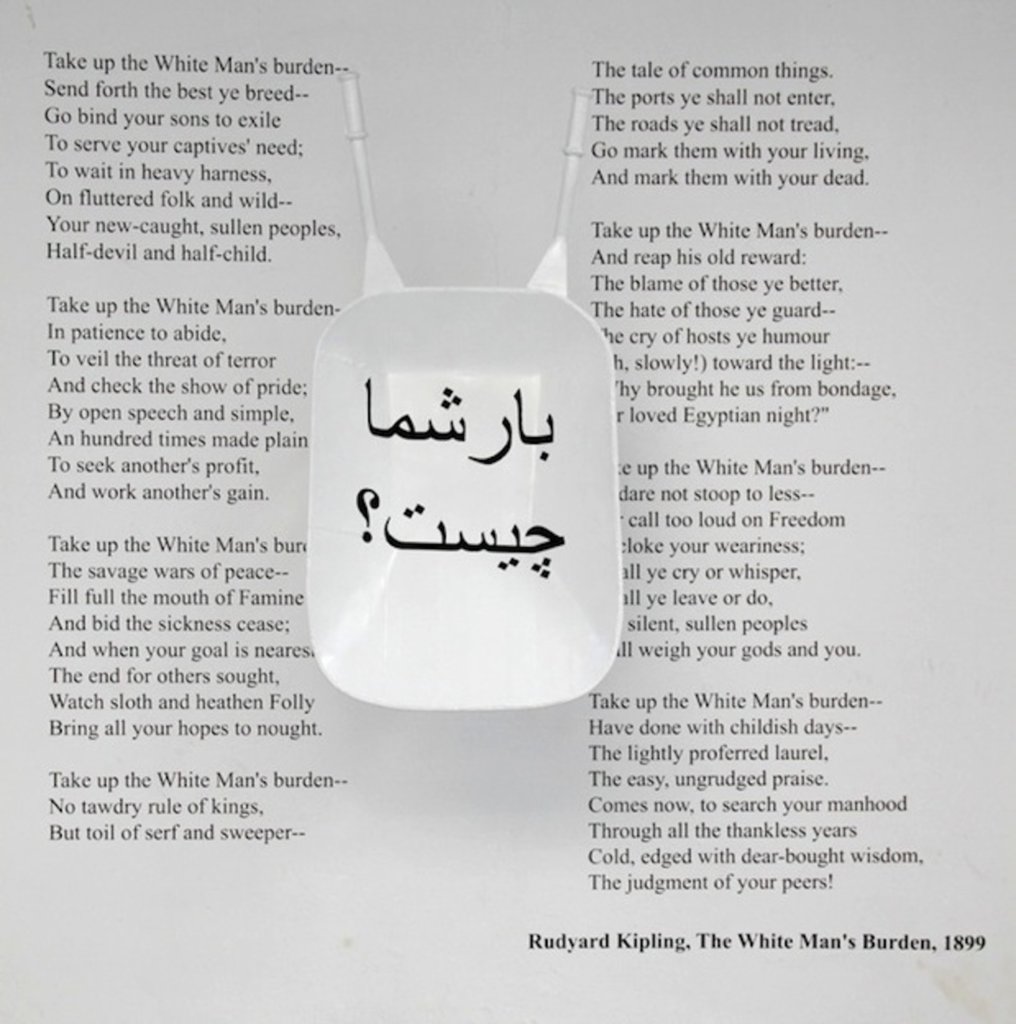 Take up the White Man's burden--
Send forth the best ye breed--
Go bind your sons to exile
To serve your captives' need;
To wait in heavy harness,
On fluttered folk and wild--
Your new-caught, sullen peoples,
Half-devil and half-child.
Take up the White Man's burden-
In patience to abide,
To veil the threat of terror
And check the show of pride;
By open speech and simple,
An hundred times made plain
To seek another's profit,
And work another's gain.
Take up the White Man's
The savage wars of peace--
Fill full the mouth of Famine
And bid the sickness cease;
And when your goal is
The end for others sought,
Watch sloth and heathen Folly
Bring all your hopes to nought.
Take up the White Man's burden--
No tawdry rule of kings,
But toil of serf and sweeper--
The tale of common things.
The ports ye shall not enter,
The roads ye shall not tread,
Go mark them with your living,
And mark them with your dead.
Take up the White Man's burden--
And reap his old reward:
The blame of those ye better,
The hate of those ye guard--
cry of hosts ye humour
slowly!) toward the light:--
brought he us from bondage,
loved Egyptian night?"
up the White Man's burden--
dare not stoop to less--
call too loud on Freedom
cloke your weariness;
ye cry or whisper,
ye leave or do,
silent, sullen peoples
weigh your gods and you.
Take up the White Man's burden--
Have done with childish days--
The lightly proferred laurel,
The easy, ungrudged praise.
Comes now, to search your manhood
Through all the thankless years
Cold, edged with dear-bought wisdom,
The judgment of your peers!
Rudyard Kipling, The White Man's Burden, 1899
بار شما
چیست؟